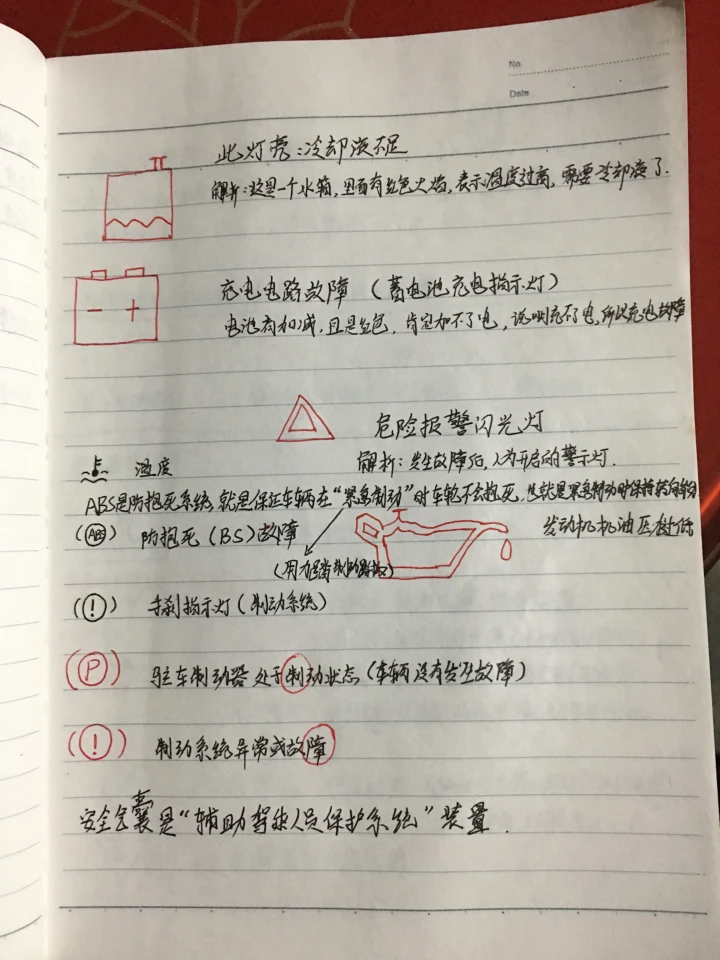 No
Date
此灯亮:冷却液不足
解析:这是一个水箱,里面有红色火焰,表示温度过高,需要冷却液了.
充电电路故障(蓄电池充电指示灯)
- +
电池有加减,且是红色,肯定加不了电,说明充不了电,所以充电故障
危险报警闪光灯
解析:发生故障后,人为开启的警示灯.
温度
ABS是防抱死系统,就是保证车辆在“紧急制动”时车轮不会抱死,也就是紧急制动时保持转向
(ABS) 防抱死(BS)故障
发动机机油压力过低
(用力踩制动踏板)
(!) 手刹指示灯(制动系统)
(P) 驻车制动器处于制动状态(车辆没有发生故障)
(!) 制动系统异常或故障
安全气囊是“辅助驾驶人员保护系统”装置.